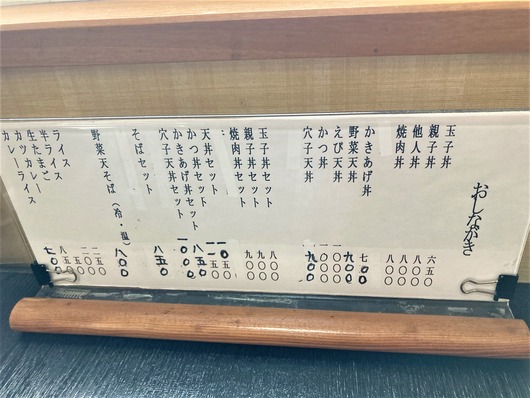 おしながき
玉子丼 六五〇
親子丼 八〇〇
他人丼 八〇〇
焼肉丼 八〇〇
かきあげ丼 七〇〇
野菜天丼 九〇〇
えび天丼
かつ丼
穴子天丼 九〇〇
玉子丼セット 八〇〇
親子丼セット 九〇〇
焼肉丼セット 九〇〇
天丼セット
かつ丼セット
かきあげ丼セット 八五〇
穴子天丼セット 一〇〇〇
そばセット 八五〇
野菜天そば（冷・温） 八〇〇
ライス
半ライス
生たまご
カツカレーライス
カレーライス 七〇〇